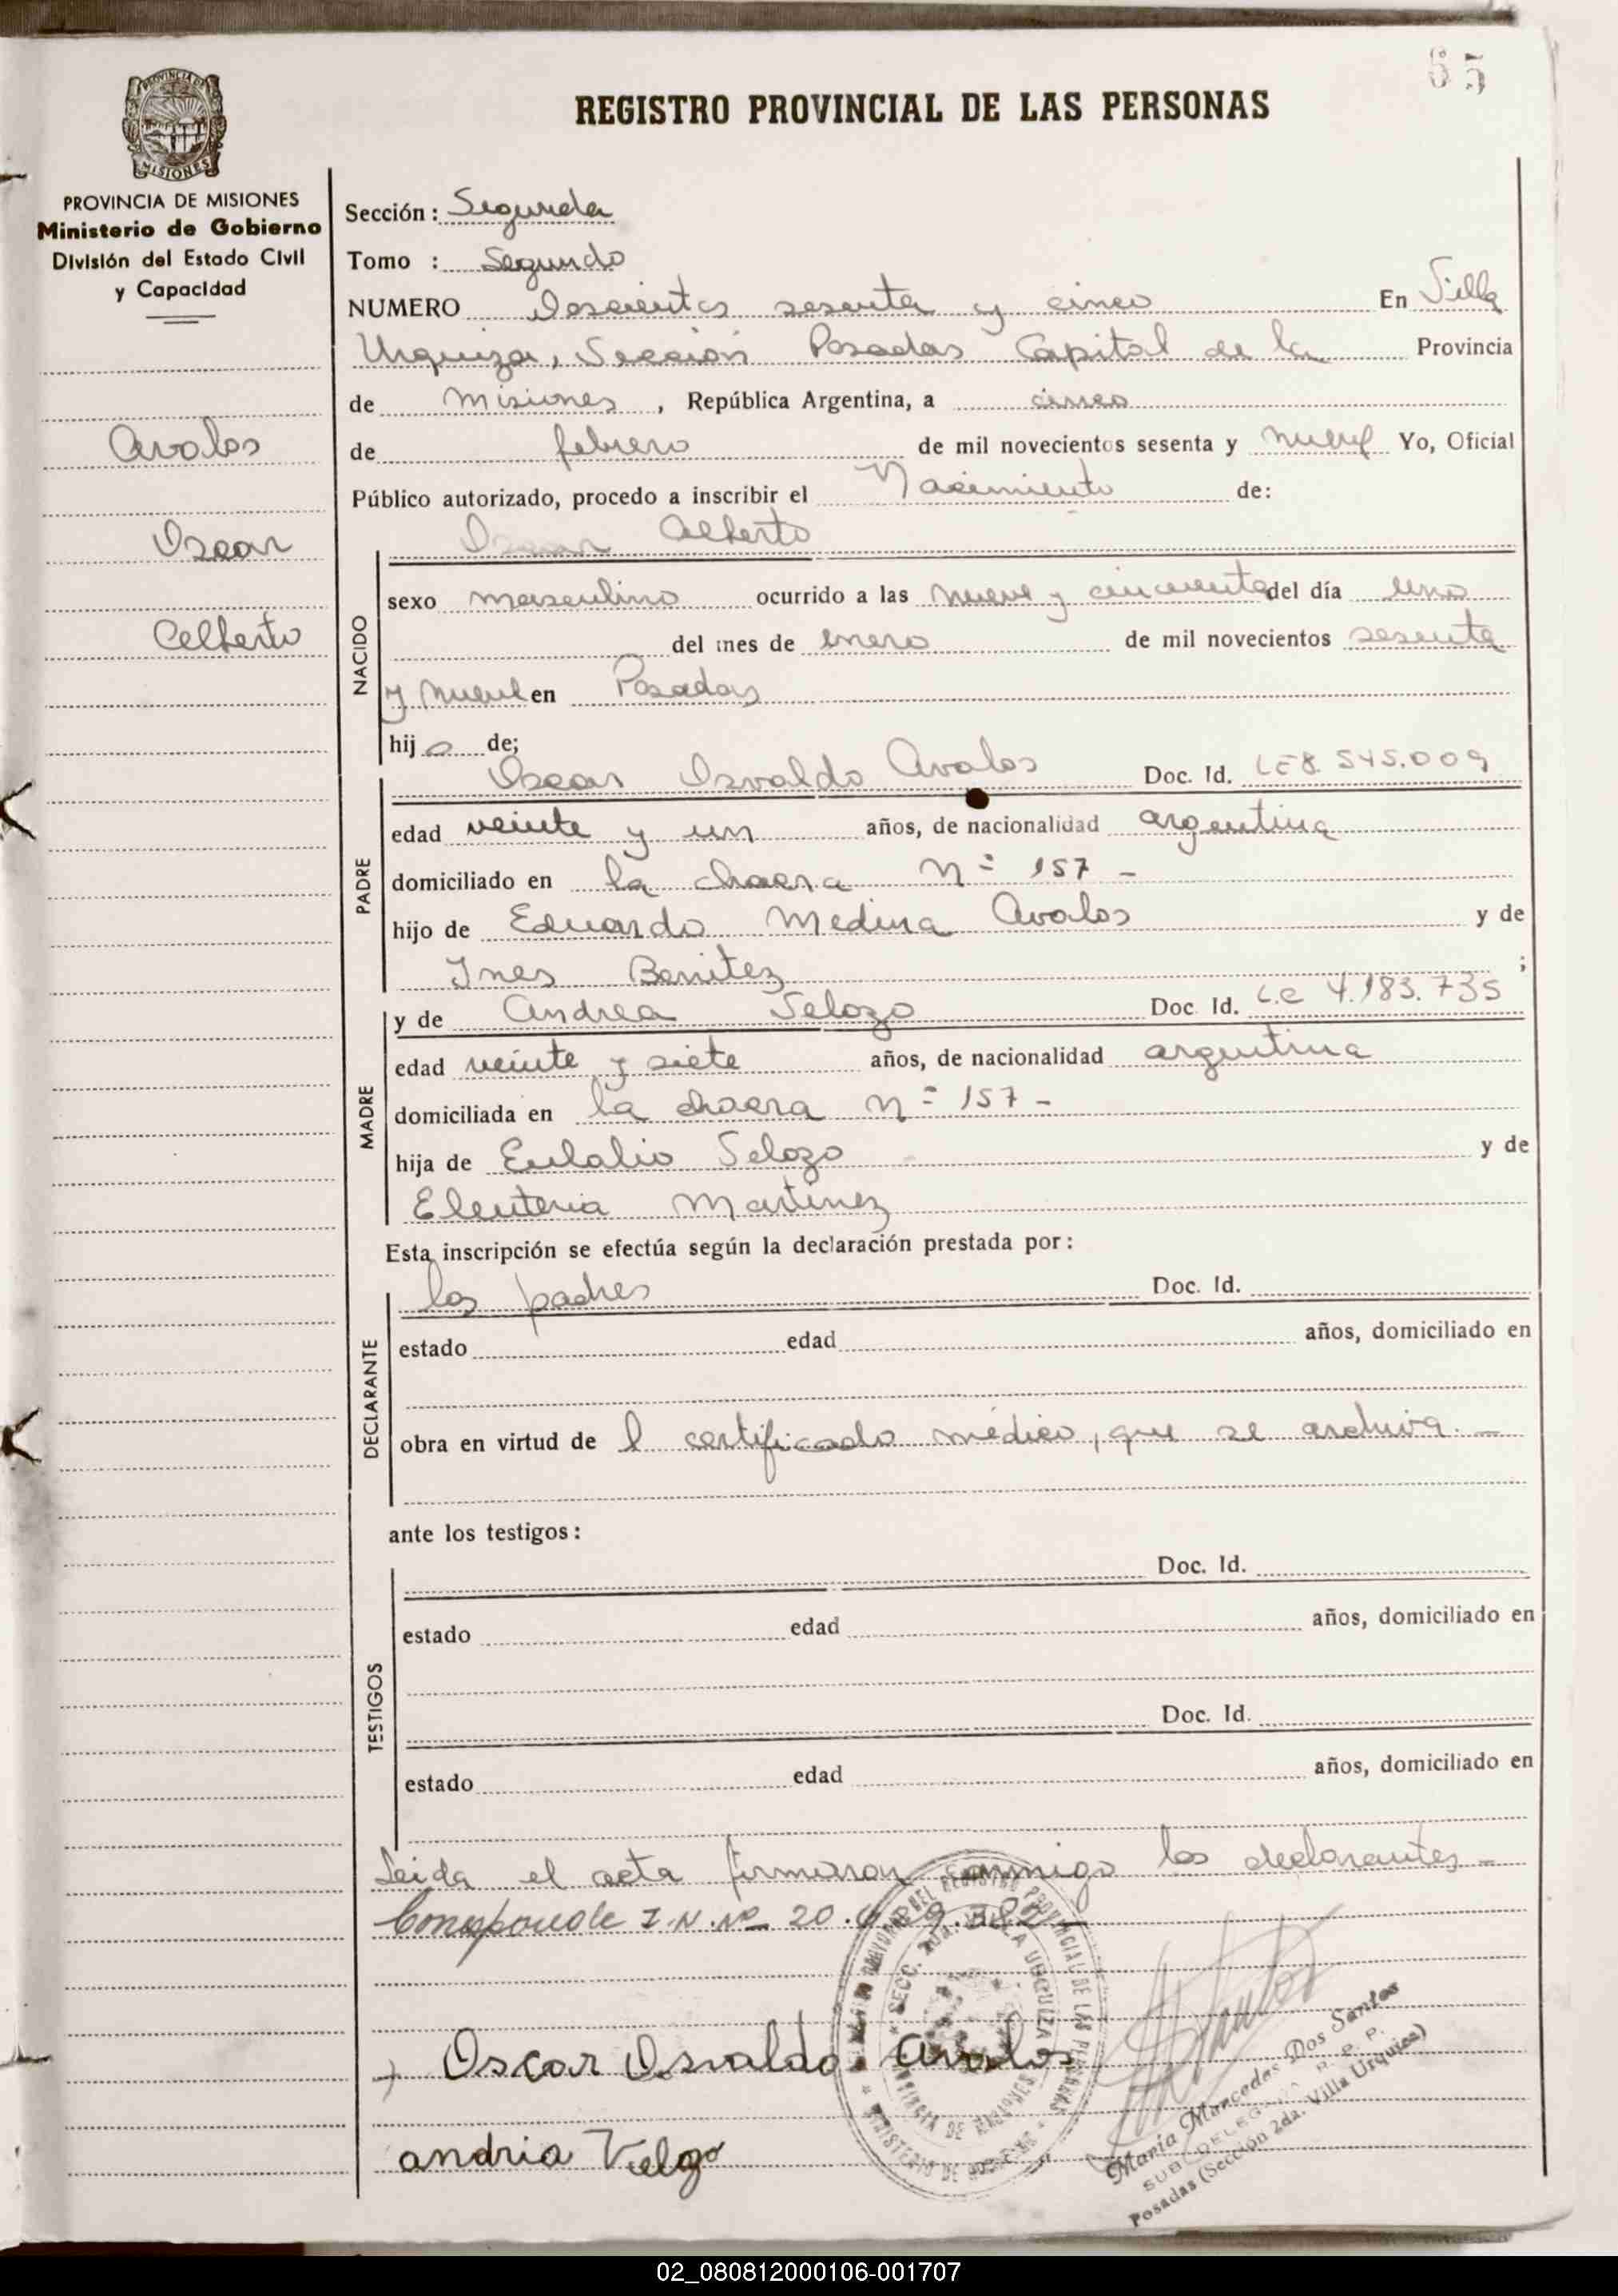 65
REGISTRO PROVINCIAL DE LAS PERSONAS
PROVINCIA DE MISIONES
MISIONES
PROVINCIA DE MISIONES
Ministerio de Gobierno
División del Estado Civil
y Capacidad
Avalos
Oscar
Alberto
Sección: Segunda
Tomo : Segundo
NUMERO Doscientos sesenta y cinco En Villa
Urquiza, Sección Posadas Capital de la Provincia
de Misiones, República Argentina, a cinco
de febrero de mil novecientos sesenta y nueve Yo, Oficial
Público autorizado, procedo a inscribir el Nacimiento de:
Oscar Alberto
NACIDO
sexo masculino ocurrido a las nueve y cincuenta del día uno
del mes de enero de mil novecientos sesenta
y nueve en Posadas
hijo de;
PADRE
Oscar Osvaldo Avalos Doc. Id. LE 8.545.009
edad veinte y un años, de nacionalidad argentina
domiciliado en la chacra nº 157 -
hijo de Eduardo Medina Avalos y de
Ines Benitez ;
MADRE
y de Andrea Velozo Doc. Id. L.C 4.183.735
edad veinte y siete años, de nacionalidad argentina
domiciliada en la chacra nº 157 -
hija de Eulalio Velozo y de
Eleuteria Martinez
Esta inscripción se efectúa según la declaración prestada por:
DECLARANTE
los padres Doc. Id.
estado edad años, domiciliado en
obra en virtud de l certificado médico, que se archiva. -
ante los testigos:
TESTIGOS
Doc. Id.
estado edad años, domiciliado en
Doc. Id.
estado edad años, domiciliado en
Leida el acta firmaron conmigo los declarantes -
Corresponde I.N.Nº 20.
SECC. 2da. VILLA URQUIZA
REGISTRO PROVINCIAL DE LAS PERSONAS
PROVINCIA DE MISIONES
MINISTERIO DE GOBIERNO
Oscar Osvaldo Avalos
María Mercedes Dos Santos
SUB DELEGADA R. P. P.
Posadas (Sección 2da. Villa Urquiza)
andria Velozo
02_080812000106-001707